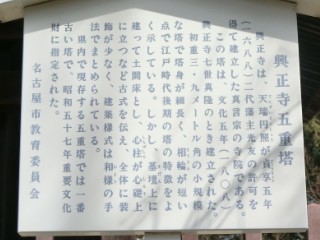 興正寺五重塔
興正寺は、天瑞圓照が貞享五年
(一六八八)二代藩主光友の許可を
得て建立した真言宗の寺院である。
この塔は、文化五年(一八〇八)
興正寺七世真隆のとき建立された。
初重三・九メートル角の小規模
な塔で塔身が細長く、相輪が短い
点で江戸時代後期の塔の特徴をよ
く示している。しかし、基壇上に
建って土間床とし、心柱が心礎上
に立つなど古式を伝え、全体に装
飾が少なく、建築様式は和様の手
法でまとめられている。
県内で現存する五重塔では一番
古い塔で、昭和五十七年重要文化
財に指定された。
名古屋市教育委員会